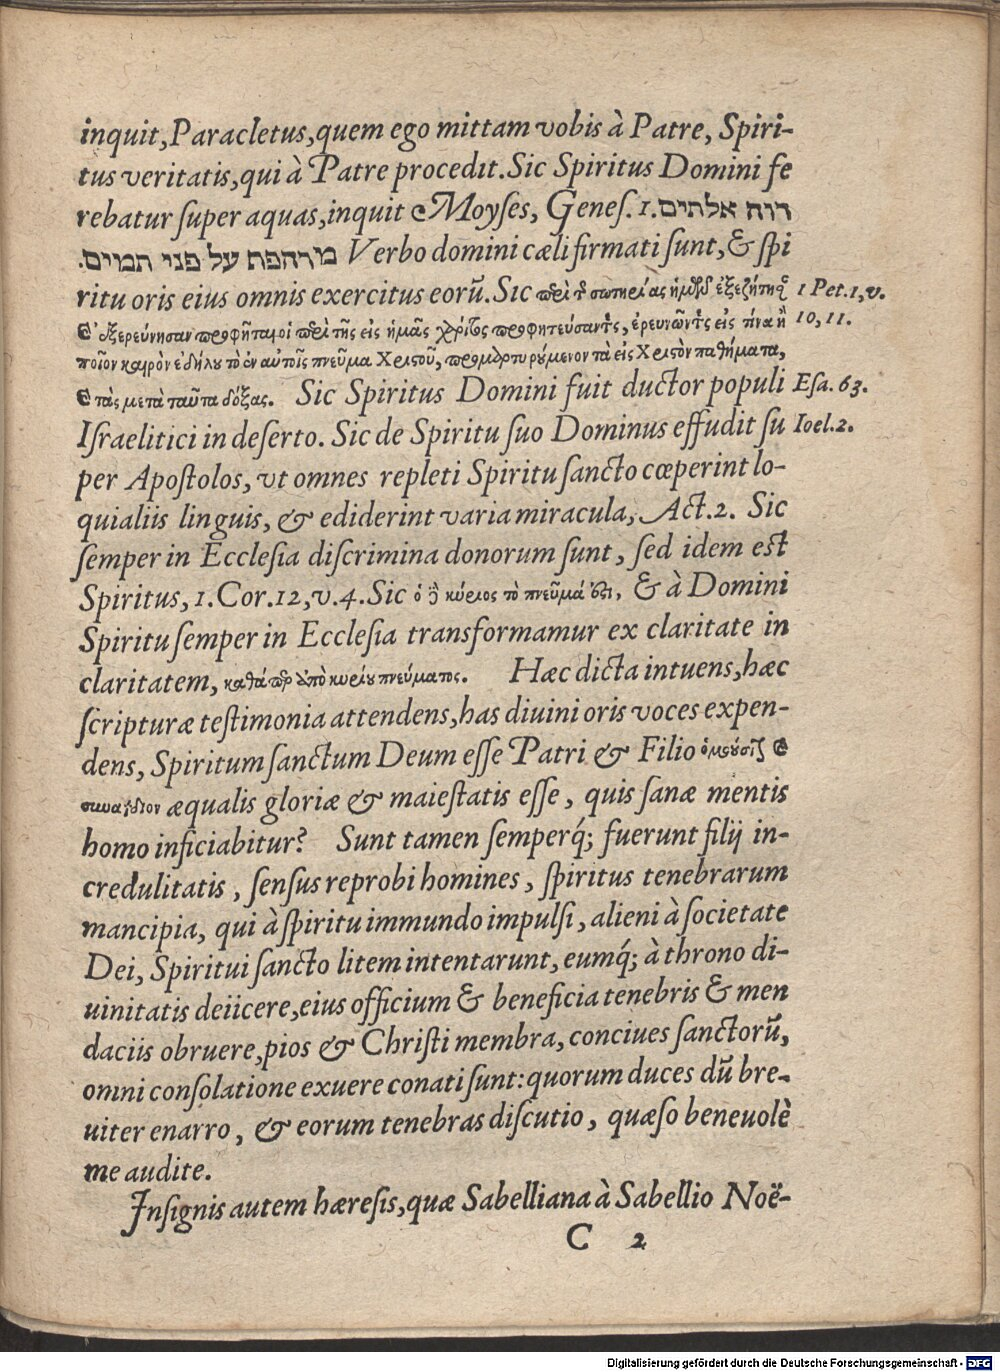 inquit, Paracletus, quem ego mittam vobis à Patre, Spiri-
tus veritatis, qui à Patre procedit. Sic Spiritus Domini fe
rebatur super aquas, inquit Moyses, Genes. 1. רוח אלהים
מרחפת על פני המים. Verbo domini cæli firmati sunt, & spi
ritu oris eius omnis exercitus eorũ. Sic περὶ τ͂ σωτηρίας ἡμῶν ἐξεζήτησ 1 Pet. 1, v.
καὶ ἐξερεύνησαν προφῆται οἱ περὶ τῆς εἰς ἡμᾶς χάριτος προφητεύσαντες, ἐρευνῶντες εἰς τίνα ἢ 10, 11.
ποῖον καιρὸν ἐδήλου τὸ ἐν αὐτοῖς πνεῦμα Χριστοῦ, προμαρτυρόμενον τὰ εἰς Χριστὸν παθήματα,
καὶ τὰς μετὰ ταῦτα δόξας. Sic Spiritus Domini fuit ductor populi Esa. 63.
Israelitici in deserto. Sic de Spiritu suo Dominus effudit su Ioel. 2.
per Apostolos, vt omnes repleti Spiritu sancto cœperint lo-
qui aliis linguis, & ediderint varia miracula, Act. 2. Sic
semper in Ecclesia discrimina donorum sunt, sed idem est
Spiritus, 1. Cor. 12, v. 4. Sic ὁ δὲ κύριος τὸ πνεῦμά ἐστι, & à Domini
Spiritu semper in Ecclesia transformamur ex claritate in
claritatem, καθάπερ ἀπὸ κυρίου πνεύματος. Hæc dicta intuens, hæc
scripturæ testimonia attendens, has diuini oris voces expen-
dens, Spiritum sanctum Deum esse Patri & Filio ὁμοούσιον καὶ
συναΐδιον æqualis gloriæ & maiestatis esse, quis sanæ mentis
homo inficiabitur? Sunt tamen semperq́; fuerunt filij in-
credulitatis, sensus reprobi homines, spiritus tenebrarum
mancipia, qui à spiritu immundo impulsi, alieni à societate
Dei, Spiritui sancto litem intentarunt, eumq́; à throno di-
uinitatis deiicere, eius officium & beneficia tenebris & men
daciis obruere, pios & Christi membra, conciues sanctorũ,
omni consolatione exuere conati sunt: quorum duces dũ bre-
uiter enarro, & eorum tenebras discutio, quæso beneuolè
me audite.
Insignis autem hæresis, quæ Sabelliana à Sabellio Noë-
C 2
Digitalisierung gefördert durch die Deutsche Forschungsgemeinschaft - DFG